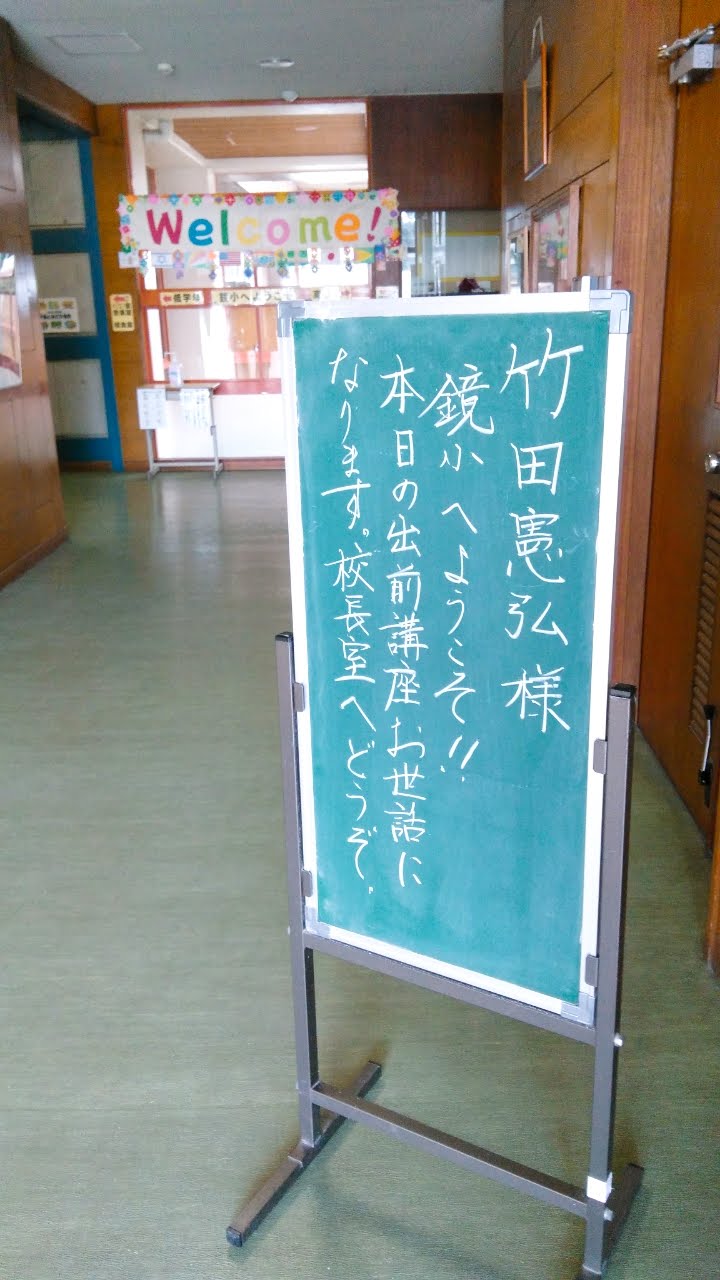 竹田憲弘様
鏡小へようこそ!!
本日の出前講座お世話に
なります。校長室へどうぞ。
Welcome!
←低学年
鏡小へようこそ